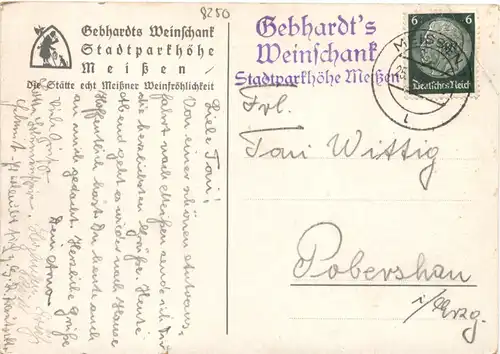 8250
Gebhardts Weinschank
Stadtparkhöhe
Meißen
Die Stätte echt Meißner Weinfröhlichkeit
Gebhardt's
Weinschank
Stadtparkhöhe Meißen
6 6
Deutsches Reich
MEISSEN
Liebe Toni!
Von einer schönen Autous-
fahrt nach Meißen sende ich Dir
die herzlichsten Grüße. Heute
Abend geht es wieder nach Hause
Hoffentlich hast Du heute auch
an mich gedacht. Herzliche Grüße
Dein
Viel Grüße
Frl.
Toni Wittig
Pobershau
i/Erzg.